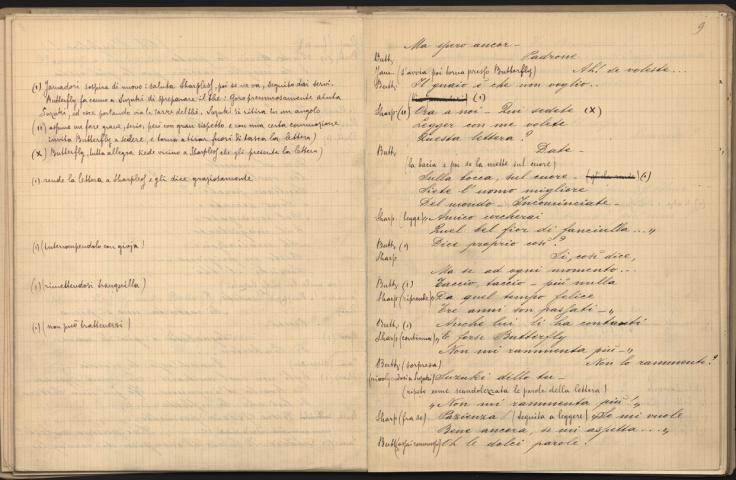 (1) Jamadori sospira di nuovo: saluta Sharpless, poi se ne va, seguito dai servi.
Butterfly fa cenno a Suzuki di preparare il thè: Goro premurosamente aiuta
Suzuki, ed esce portando via le tazze del thè. Suzuki si ritira in un angolo
(11) assume un fare grave, serio, però con gran rispetto e con una certa commozione
invita Butterfly a sedere, e torna a tirar fuori di tasca la lettera)
(X) Butterfly, tutta allegra siede vicino a Sharpless che gli presenta la lettera)
(1) rende la lettera a Sharpless e gli dice graziosamente
(1) (interrompendolo con gioja!
(1) (rimettendosi tranquilla)
(1) (non può trattenersi)
9
Ma spero ancor –
Butt. Padrone
Jam. (s'avvia poi torna presso Butterfly) Ah! se voleste...
Butt. Il guaio è che non voglio..
(1)
Sharp (11) Ora a noi – Qui sedete (X)
Legger con me volete
Questa lettera?
Butt. Date –
(la bacia e poi se la mette sul cuore)
Sulla bocca, sul cuore – (1)
Siete l'uomo migliore
Del mondo – Incominciate –
Sharp (legge) „Amico cercherai
Quel bel fior di fanciulla...„
Butt. (1) Dice proprio così?
Sharp Sì, così dice,
Ma se ad ogni momento...
Butt. (1) Taccio, taccio – più nulla
Sharp (riprende) „Da quel tempo felice
Tre anni son passati – „
Butt. (1) Anche lui li ha contati
Sharp (continua) „E forse Butterfly
Non mi rammenta più – „
Butt. (sorpresa) Non lo rammento?
(rivolgendosi a Suzuki) Suzuki dillo tu –
(ripete come scandolezzata le parole della lettera)
„Non mi rammenta più!„
Sharp (fra se) Pazienza! (seguita a leggere) „Se mi vuole
Bene ancora, se mi aspetta...„
Butt. Oh le dolci parole!